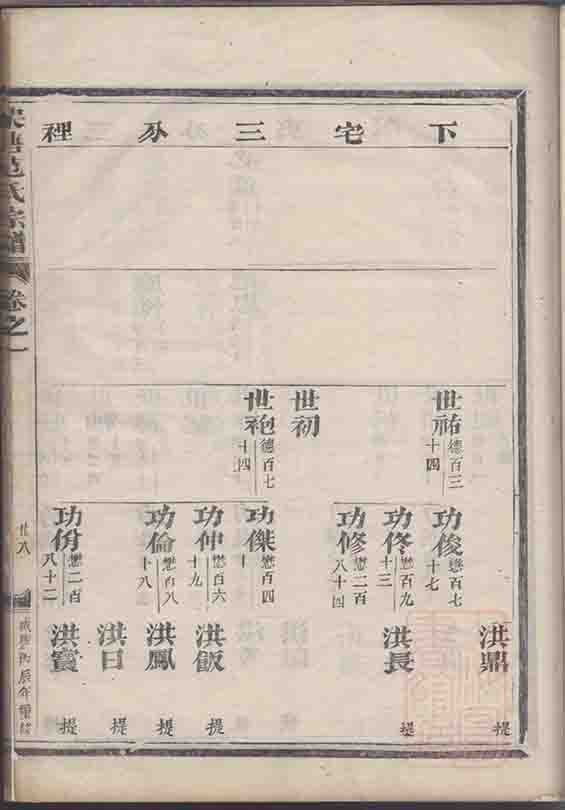 下宅三分裡
世祐
德百三
十四
世初
世袍
德百七
十四
功俊
懋百七
十七
功佟
懋百九
十三
功修
懋二百
八十四
功傑
懋百四
十
功仲
懋百六
十九
功倫
懋百八
十八
功份
懋二百
八十二
洪鼎
提
洪長
提
洪飯
提
洪鳳
提
洪日
提
洪寶
提
范氏宗譜
卷之一
廿八
咸豐丙辰年重修